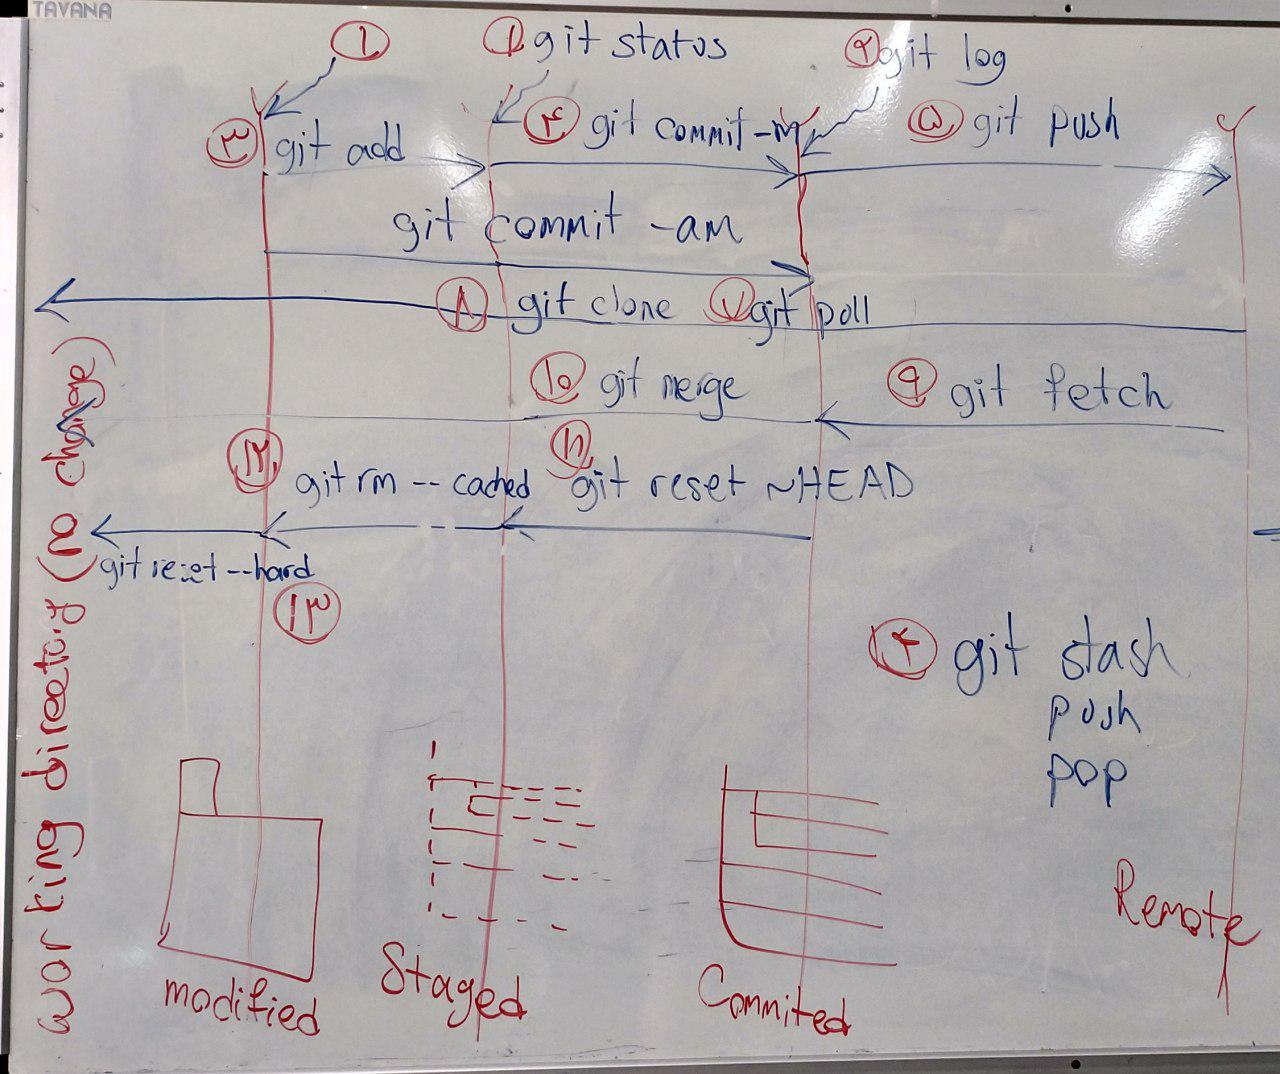 TAVANA
۱
۱ git status
۲ git log
۳ git add
۴ git commit -m
۵ git push
git commit -am
۸ git clone
۷ git poll
۱۰ git merge
۹ git fetch
۱۲ git rm -- cached
۱۱ git reset ~HEAD
git reset --hard
۱۳
git stash
push
pop
working directory (no change)
modified
Staged
Commited
Remote